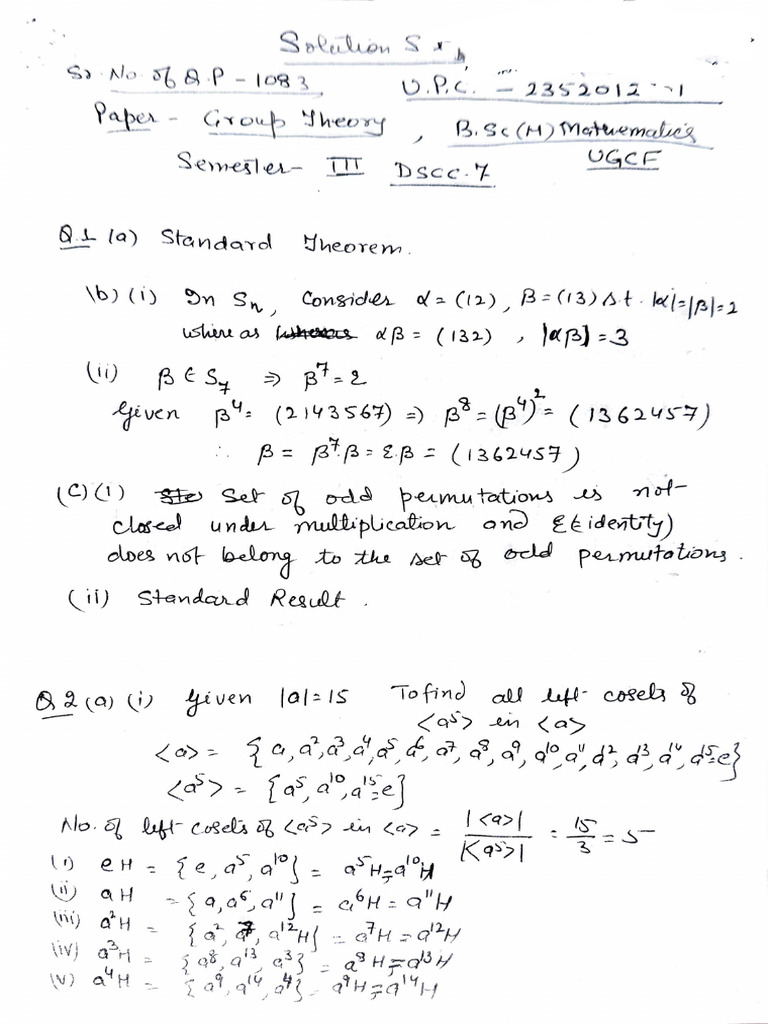 Solution S
Sr. No. of Q.P - 1083 U.P.C. - 2352012 1
Paper - Group Theory, B.Sc (H) Mathematics
Semester - III DSCC-7 UGCF
Q.1 (a) Standard Theorem.
(b) (i) In Sₙ, consider α = (12), β = (13) s.t. |α|=|β|=2
where as αβ = (132), |αβ| = 3
(ii) β ∈ S₇ ⇒ β⁷ = ε
Given β⁴ = (2143567) ⇒ β⁸ = (β⁴)² = (1362457)
∴ β = β⁷.β = ε.β = (1362457)
(C) (1) Set of odd permutations is not
closed under multiplication and ε (identity)
does not belong to the set of odd permutations.
(ii) Standard Result.
Q2 (a) (i) Given |a| = 15 To find all left cosets of
<a⁵> in <a>
<a> = {a, a², a³, a⁴, a⁵, a⁶, a⁷, a⁸, a⁹, a¹⁰, a¹¹, a¹², a¹³, a¹⁴, a¹⁵=e}
<a⁵> = {a⁵, a¹⁰, a¹⁵=e}
No. of left cosets of <a⁵> in <a> = |<a>| / |<a⁵>| = 15/3 = 5
(i) eH = {e, a⁵, a¹⁰} = a⁵H = a¹⁰H
(ii) aH = {a, a⁶, a¹¹} = a⁶H = a¹¹H
(iii) a²H = {a², a⁷, a¹²H} = a⁷H = a¹²H
(iv) a³H = {a⁸, a¹³, a³} = a⁸H = a¹³H
(v) a⁴H = {a⁹, a¹⁴, a⁴} = a⁹H = a¹⁴H